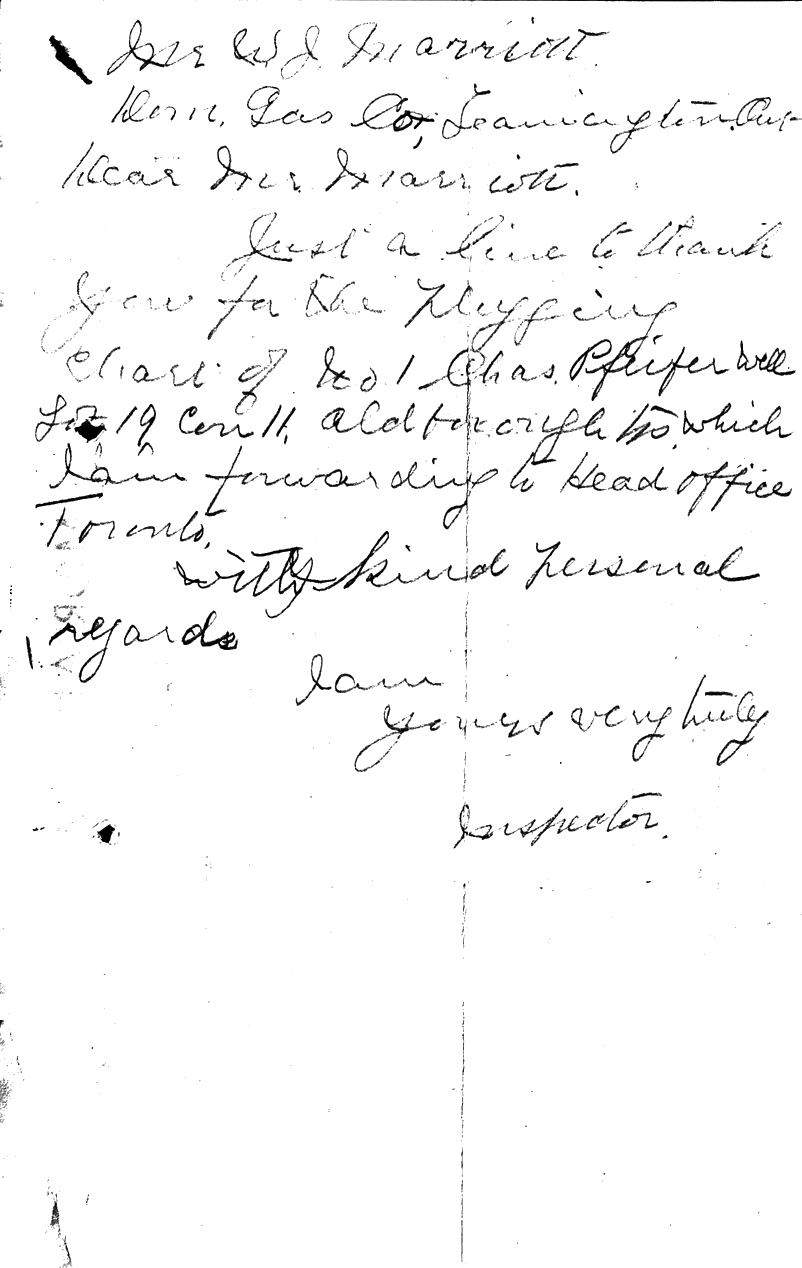 Mr W J Marriott.
Dom. Gas Co, Leamington. Ont
Dear Mr. Marriott.
Just a line to thank
you for the plugging
chart of No 1 Chas. Pfeifer well
Lot 19, Con 11, Aldborough tp. which
I am forwarding to Head office
Toronto.
with kind personal
regards
I am
yours very truly
Inspector.